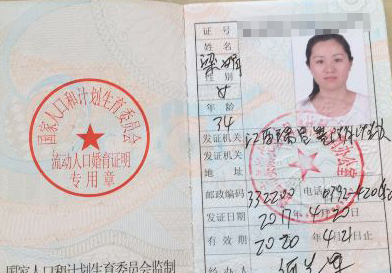 国家人口和计划生育委员会
流动人口婚育证明
专用章
国家人口和计划生育委员会监制
证号
姓名
梁娟
性别
女
年龄
34
发证机关
发证机关
地址
邮政编码 332200 电话 0792-420
发证日期 2017年4月20日
有效期 2020 4月21
经办人